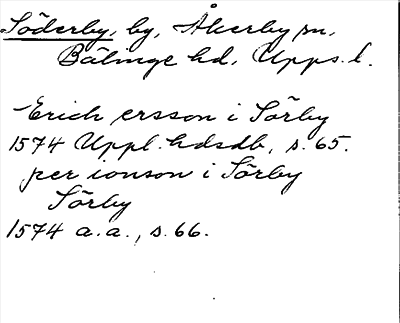 Söderby, by, Åkerby sn,
Bälinge hd, Upps. l.
Erich ersson i Sörby
1574 Uppl. hdsdb, s. 65.
per ionson i Sörby
Sörby
1574 a.a., s. 66.